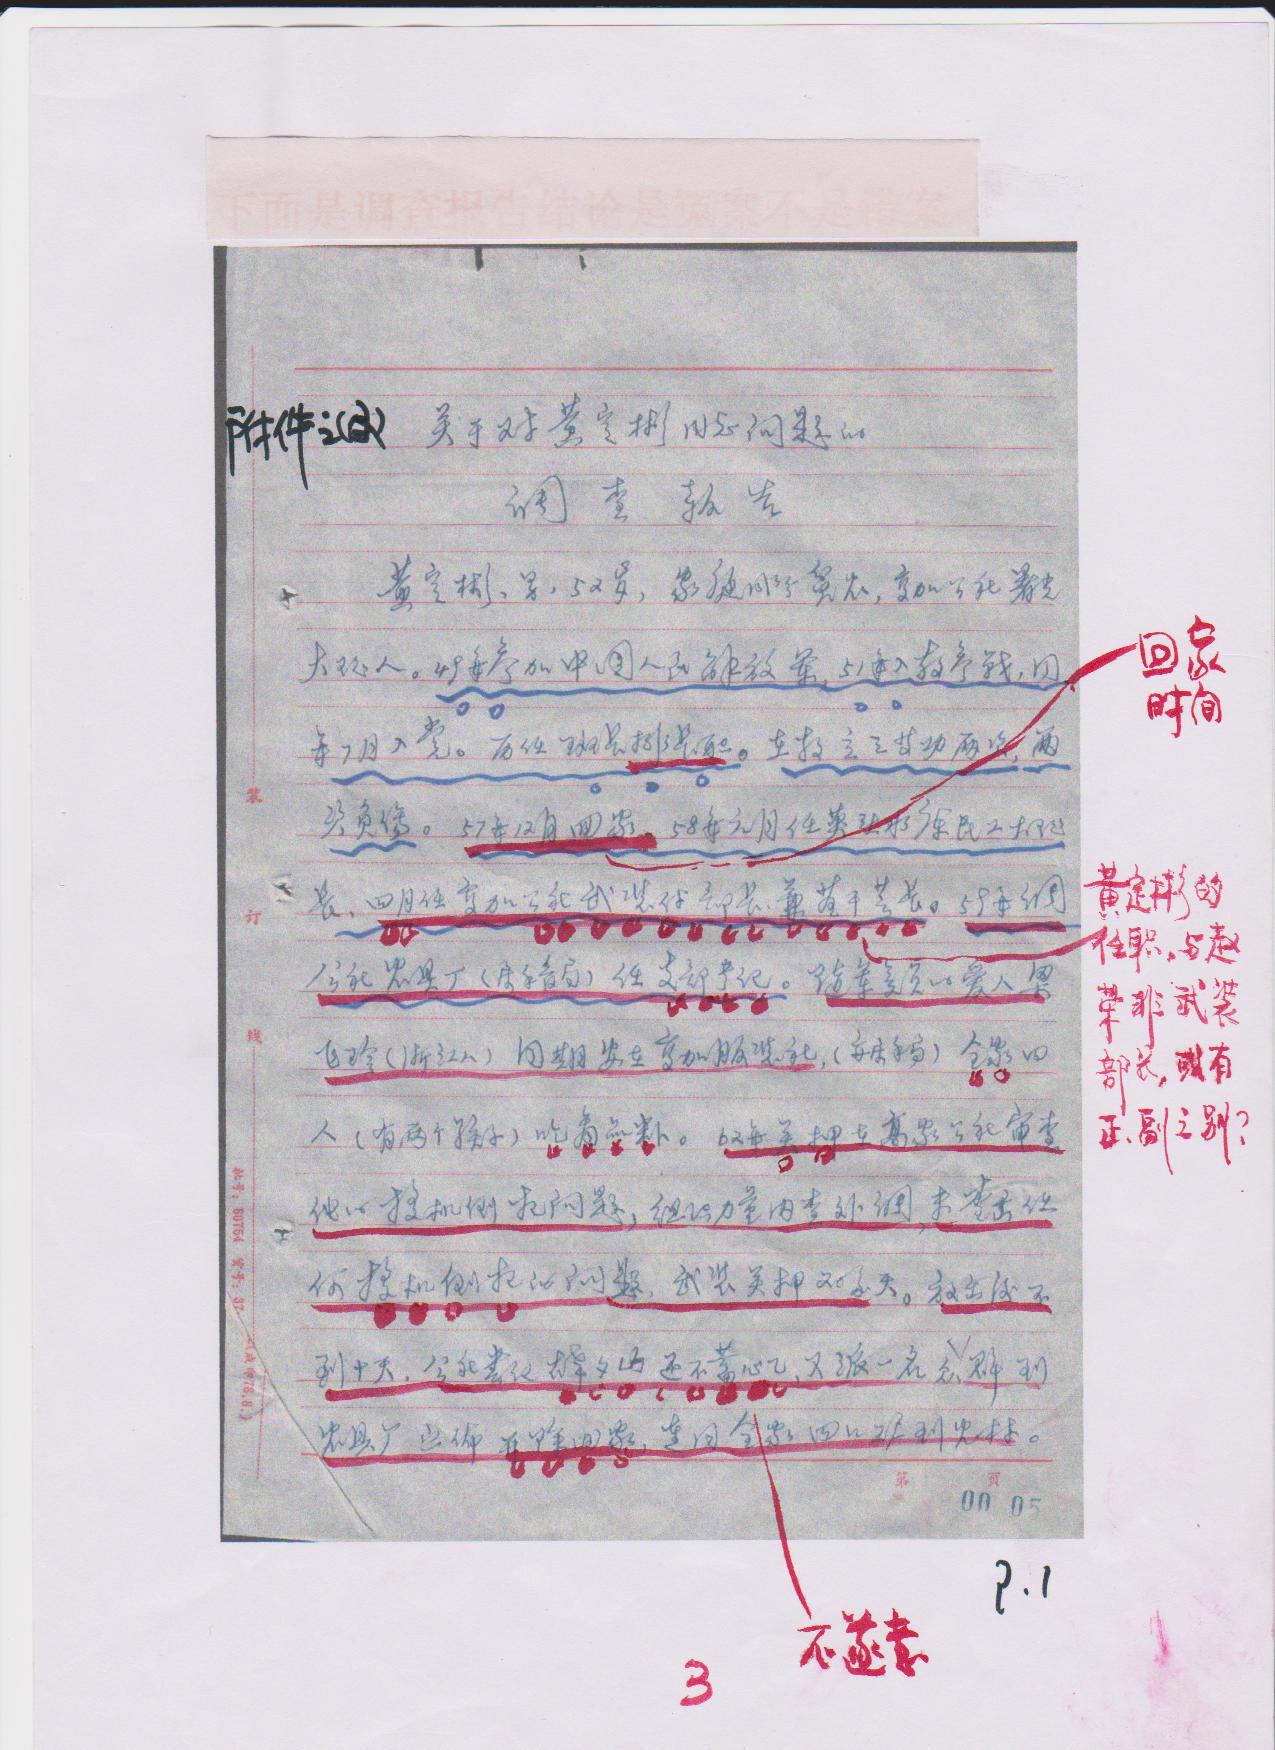 下面是调查报告结论是冤案不是错案
附件之(2)
关于对黄定彬同志问题的
调查报告
黄定彬、男、52岁,家庭成份贫农,变加公社署光
大队人。49年参加中国人民解放军,51年入朝参战,同
年7月入党。历任班长排长职。在朝立三等功两次,两
次负伤。57年12月回家。58年元月任英 水库民工大队
长、四月任变加公社武装付部长兼 干营长。59年调
公社农具厂( )任支部书记。随军家属的爱人梁
飞珍(浙江人)同期安在变加服装社,( )全家四
人(有两个孩子)吃商品粮。62年关押在高家公社审查
他的投机倒把问题,组织力量内查外调,未查出任
何投机倒把的问题,武装关押20多天。放出后不
到十天,公社书记 还不 心,又派一名 到
农具厂宣布开除回家,连同全家四口赶到农村。
装
订
线
批号:80754
第 页
00 05
回家
时间
黄定彬的
任职,与赵
荣非武装
部长,或有
正、副之别?
不遂意
P.1
3